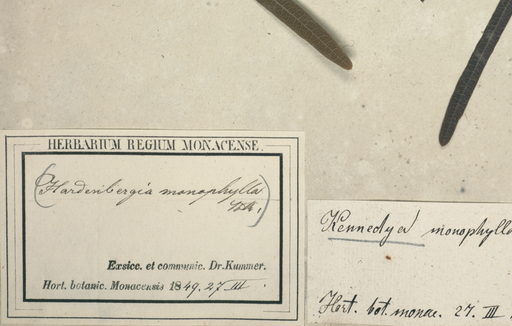 HERBARIUM REGIUM MONACENSE.
(Hardenbergia monophylla
)
Exsicc. et communic. Dr. Kummer.
Hort. botanic. Monacensis 1849. 27 III.
Kennedya monophylla
Hort. bot. monac. 27. III.